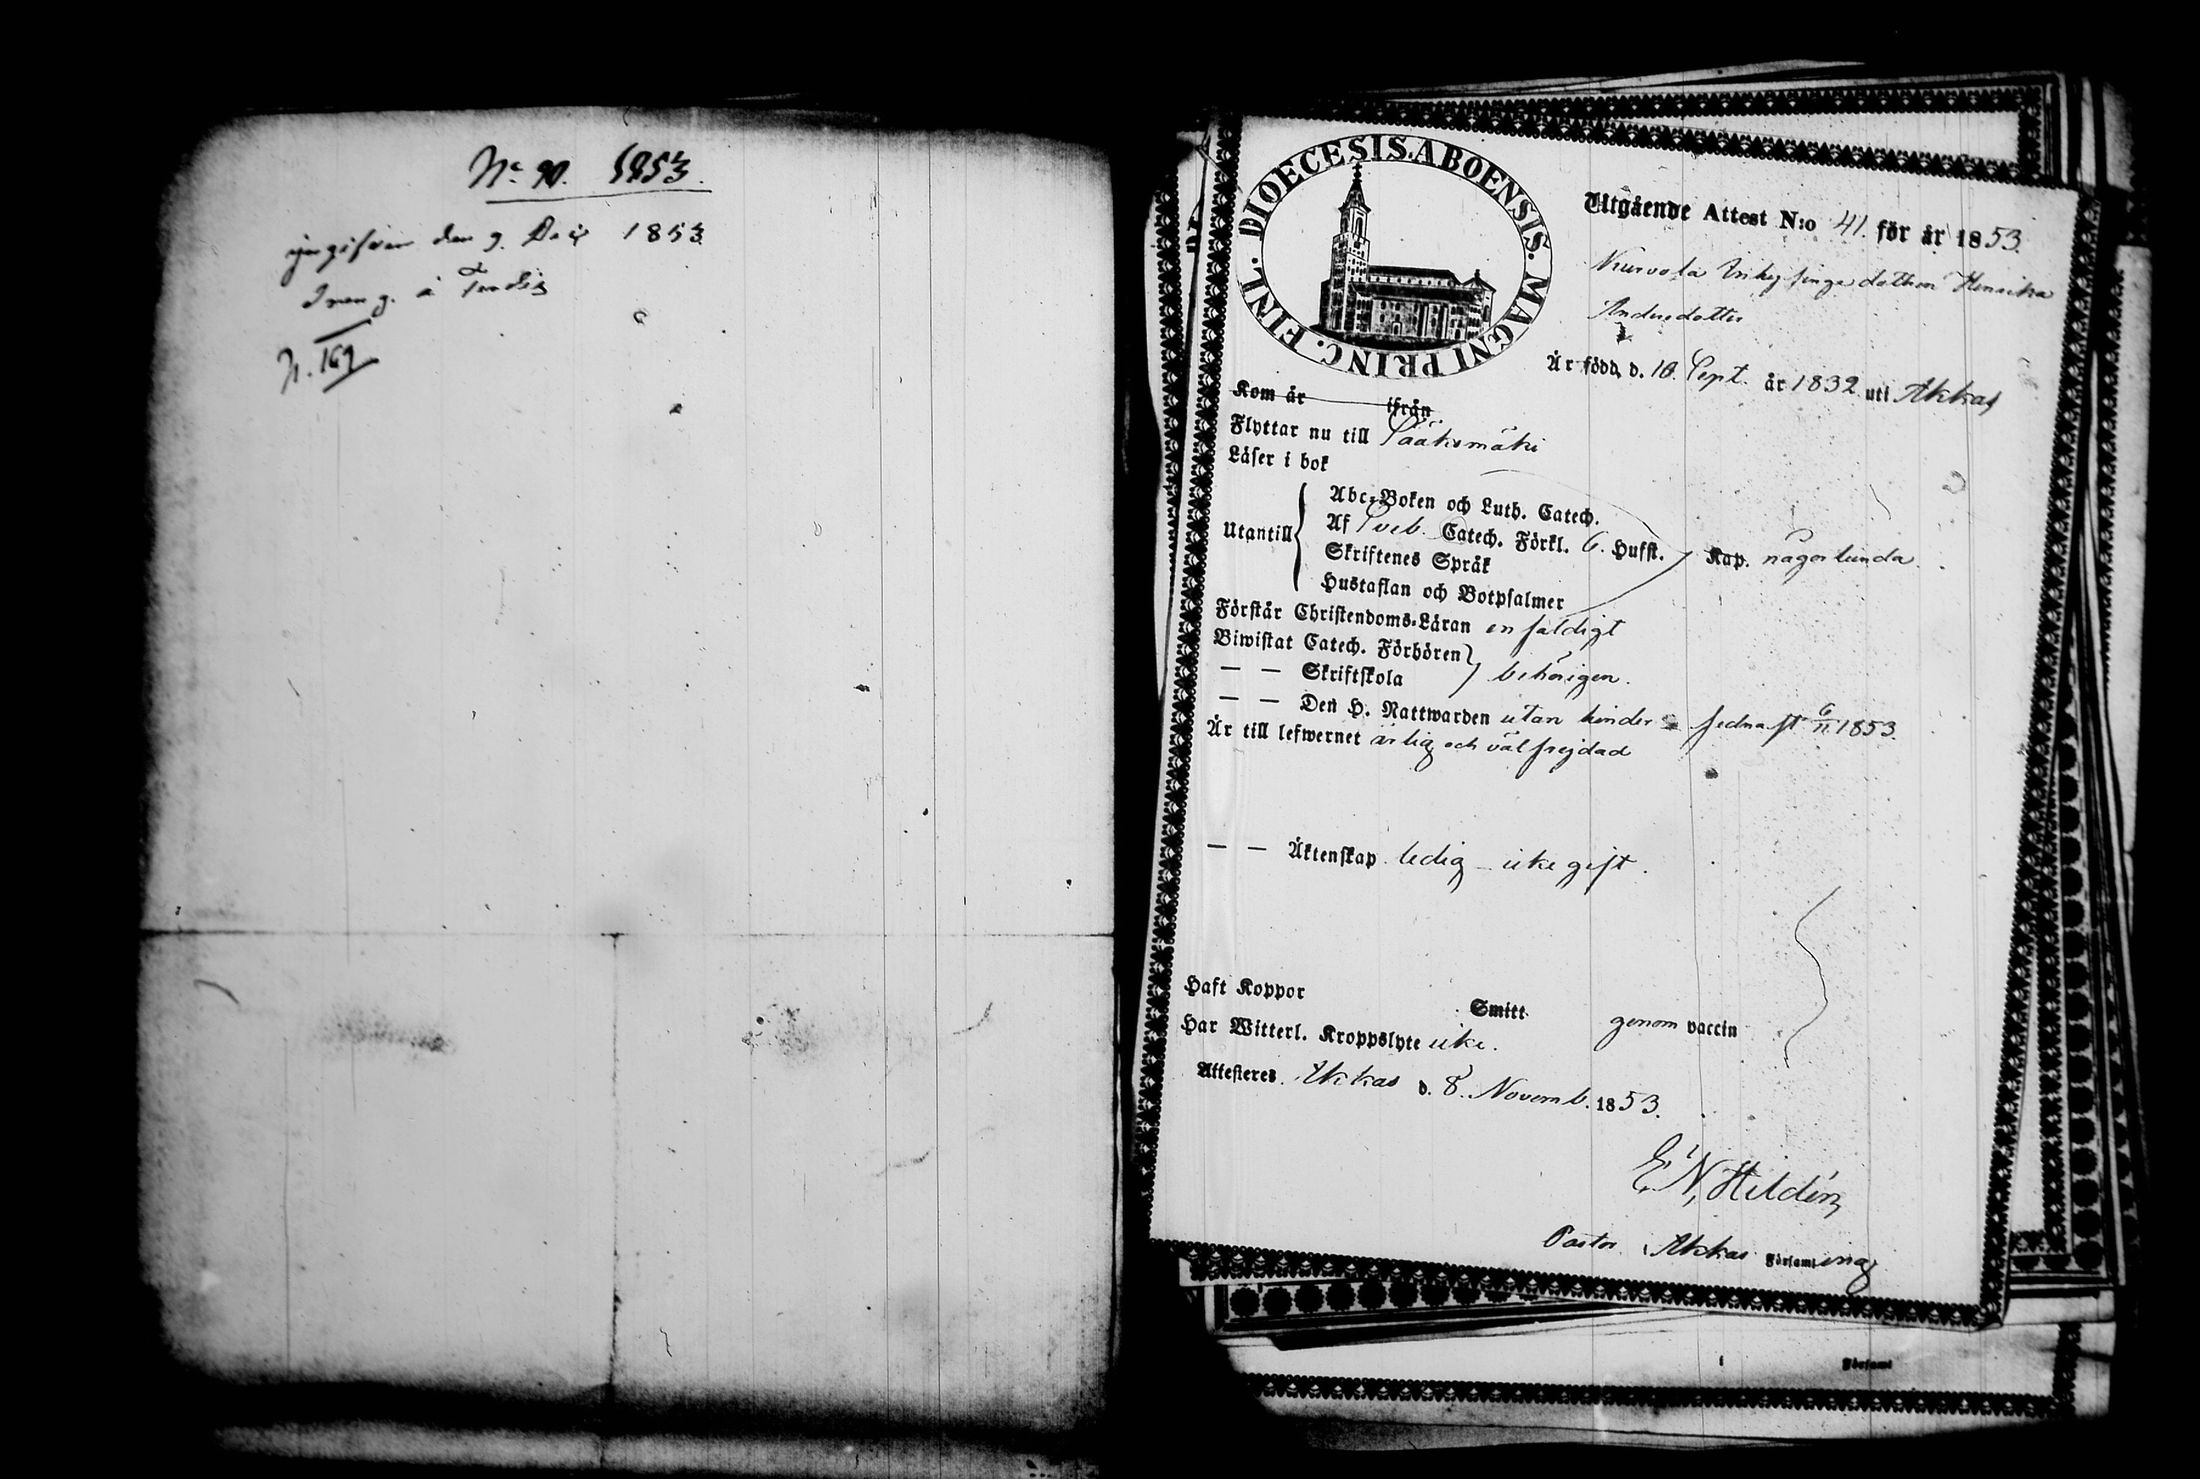 No 90. 1853.
den 9. 1853
N. 169
DIOECESIS. ABOENSIS. MAGNI PRINC. FINL.
Utgående Attest N:o 41 för år 1853
dottren Henrika
Andersdotter
Är född, d. 10. Sept. år 1832 uti Akkas
Kom år ifrån
Flyttar nu till Sääksmäki
Läser i bok
Abc-Boken och Luth. Catech.
Utantill Af Sveb. Catech. Förkl. 6. Hufst. Kap. någorlunda
Skriftenes Språk
Hustaflan och Botpsalmer
Förstår Christendoms-Läran enfaldigt
Biwistat Catech. Förhören
— — Skriftskola behörigen.
— — Den H. Nattwarden utan hinder sednast 6/11 1853.
Är till lefwernet ärlig och välfrejdad
— — Äktenskap ledig icke gift.
Haft Koppor Smitt genom vaccin
Har Witterl. Kroppslyte icke.
Attesteras. Akkas d. 8. Novemb. 1853.
E. N. Hildén
Pastor i Akkas Församling
i Församl